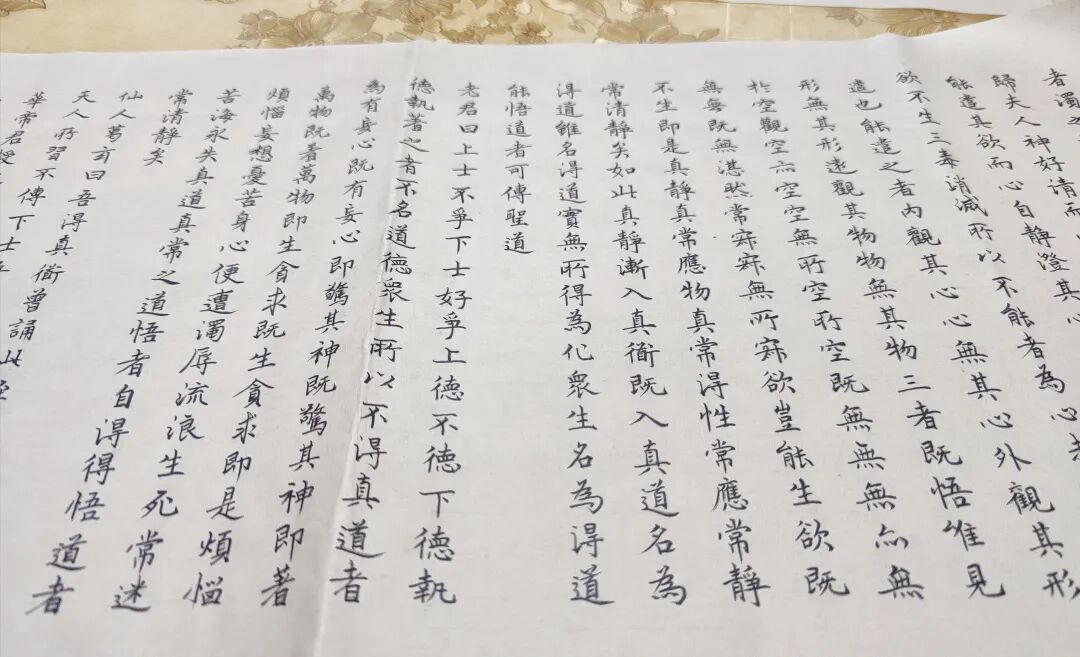 者濁
歸夫人神好清而
能遣其欲而心自靜澄其心
欲不生三毒消滅所以不能者為心未
遣也能遣之者內觀其心心無其心外觀其形
形無其形遠觀其物物無其物三者既悟唯見
於空觀空亦空空無所空所空既無無無亦無
無無既無湛然常寂寂無所寂欲豈能生欲既
不生即是真靜真常應物真常得性常應常靜
常清靜矣如此真靜漸入真衜既入真道名為
得道雖名得道實無所得為化衆生名為得道
能悟道者可傳聖道
老君曰上士不爭下士好爭上德不德下德執
德執著之者不名道德衆生所以不得真道者
為有妄心既有妄心即驚其神既驚其神即著
萬物既著萬物即生貪求既生貪求即是煩惱
煩惱妄想憂苦身心便遭濁辱流浪生死常迷
苦海永失真道真常之道悟者自得得悟道者
常清靜矣
仙人葛玄曰吾得真衜曾誦此
天人所習不傳下士
華帝君授